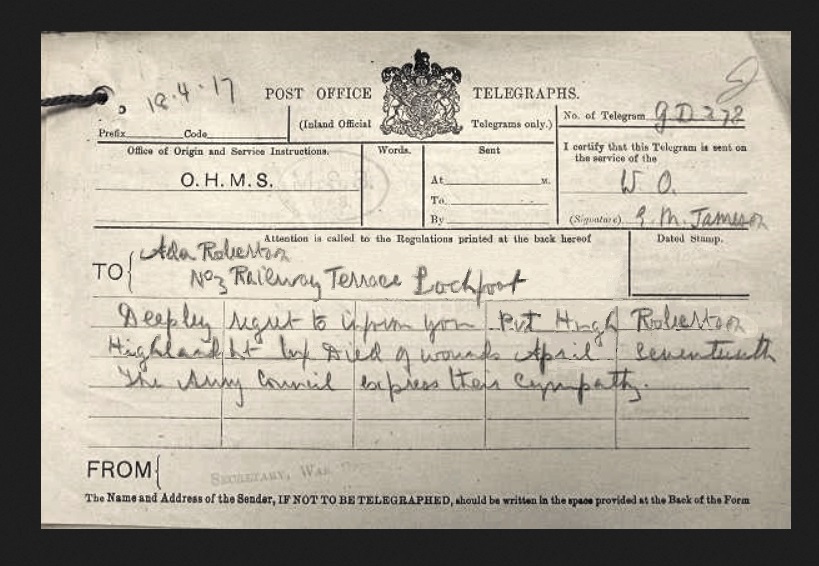 18.4.17
POST OFFICE TELEGRAPHS.
(Inland Official Telegrams only.)
No. of Telegram GD 278
Prefix Code
Office of Origin and Service Instructions.
O.H.M.S.
Words.
Sent
At M.
To
By
I certify that this Telegram is sent on
the service of the
W O.
(Signature) M. Jameson
Attention is called to the Regulations printed at the back hereof
Dated Stamp.
TO Ada Robertson
No 3 Railway Terrace Lochfoot
Deepley regret to inform you Pvt Hugh Robertson
Highland Lt Inf Died of wounds April Seventeenth
The Army Council express their Sympathy.
FROM
SECRETARY, WAR
The Name and Address of the Sender, IF NOT TO BE TELEGRAPHED, should be written in the space provided at the Back of the Form